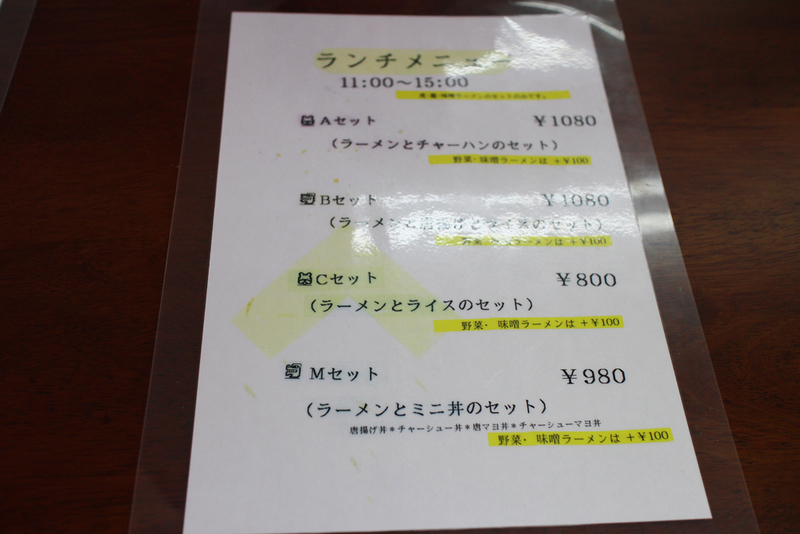 ランチメニュー
11:00～15:00
味噌ラーメンのセットのみです。
Aセット ￥1080
（ラーメンとチャーハンのセット）
野菜・味噌ラーメンは ＋￥100
Bセット ￥1080
（ラーメンと唐揚げとライスのセット）
野菜 ラーメンは ＋￥100
Cセット ￥800
（ラーメンとライスのセット）
野菜・ 味噌ラーメンは ＋￥100
Mセット ￥980
（ラーメンとミニ丼のセット）
唐揚げ丼＊チャーシュー丼＊唐マヨ丼＊チャーシューマヨ丼
野菜・ 味噌ラーメンは ＋￥100